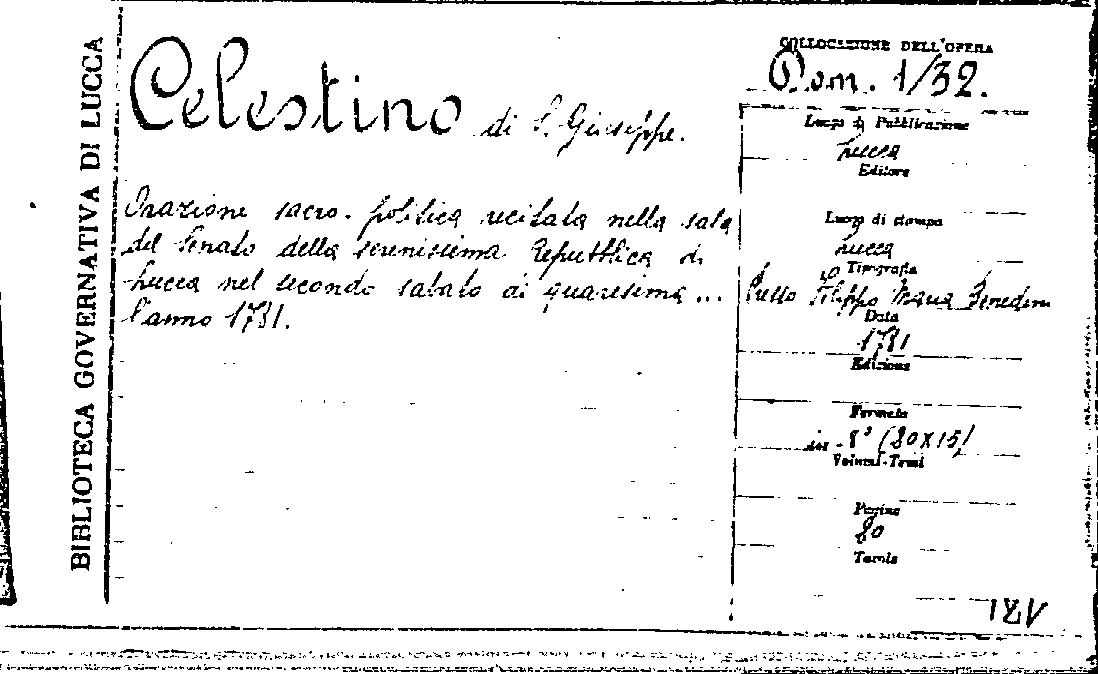 BIBLIOTECA GOVERNATIVA DI LUCCA
Celestino di S. Giuseppe.
Orazione sacro-politica recitata nella sala
del Senato della serenissima Repubblica di
Lucca nel secondo sabato di quaresima...
l'anno 1781.
COLLOCAZIONE DELL'OPERA
Dom. 1/32.
Luogo di Pubblicazione
Lucca
Editore
Luogo di stampa
Lucca
Tipografia
Presso Filippo Maria Benedini
Data
1781
Edizione
Formato
in-8° (20x15)
Volumi-Tomi
Pagine
20
Tomis